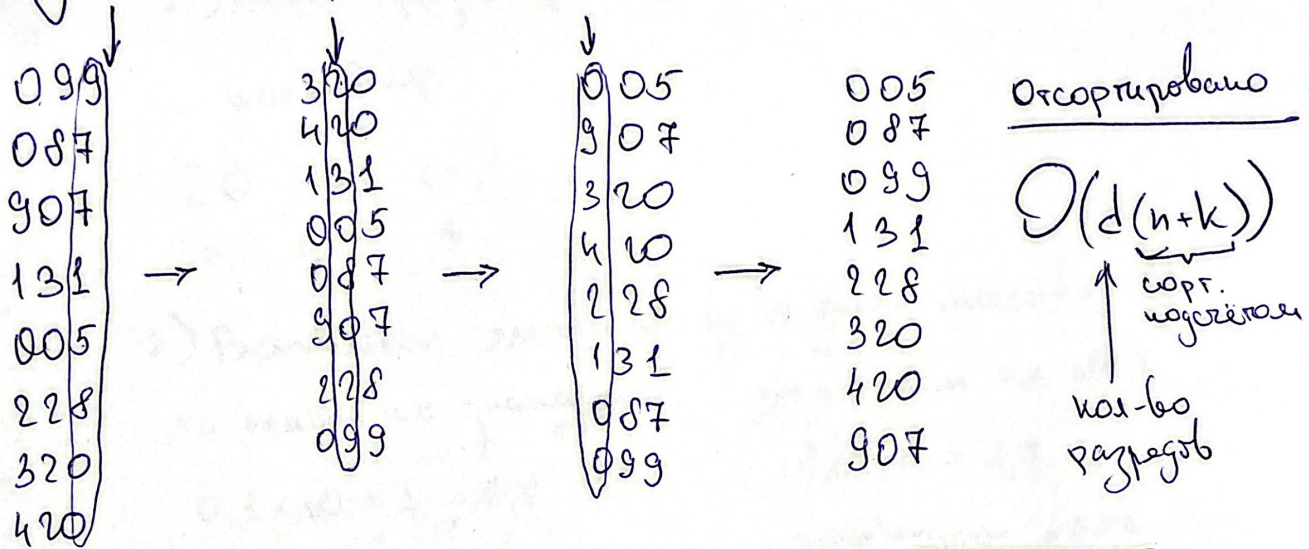 099
087
907
131
005
228
320
420
→
320
420
131
005
087
907
228
099
→
005
907
320
420
228
131
087
099
→
005
087
099
131
228
320
420
907
Отсортировано
O(d(n+k))
сорт.
подсчётом
кол-во
разрядов